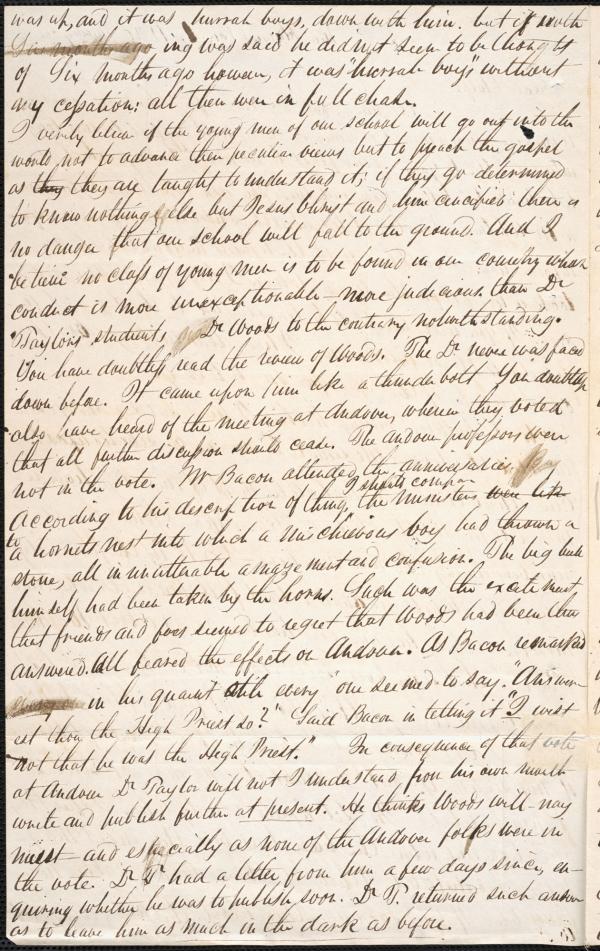 was up, and it was hurrah boys, down with him. but if noth
Six months ago ing was said he did not seem to be thought
of Six months ago however, it was "hurrah boys" without
any cessation: all then were in full chase.
I verily believe if the young men of our school will go out into the
world not to advance their peculiar views but to preach the gospel
as they they are taught to understand it; if they go determined
to know nothing else but Jesus Christ and him crucified there is
no danger that our school will fall to the ground. And I
no class of young men is to be found in our country whose
conduct is more unexceptionable—more judicious than Dr
Taylors students Dr Woods to the contrary notwithstanding.
You have doubtless read the review of Woods. The Dr never was faced
down before. It came upon him like a thunder bolt You doubtless
also have heard of the meeting at Andover, wherein they voted
that all further discussion should cease. The Andover professors were
not in the vote. Mr Bacon attended the anniversaries.
According to his description of things, I should compare the ministers were like
to a hornets nest into which a mischievous boy had thrown a
stone, all in unutterable amazement and confusion. The big bull
himself had been taken by the horns. Such was the excitement
that friends and foes seemed to regret that Woods had been thus
answered. All feared the effects on Andover. As Bacon remarked
in his quaint style every "one seemed to say. "Answer-
est thou the High Priest so?" Said Bacon in telling it "I wist
not that he was the High Priest." In consequence of that vote
at Andover Dr Taylor will not I understand from his own mouth
write and publish further at present. He thinks Woods will—nay
must—and especially as none of the Andover folks were in
the vote. Dr T had a letter from him a few days since, en-
quiring whether he was to publish soon. Dr T. returned such answer
as to leave him as much in the dark as before.